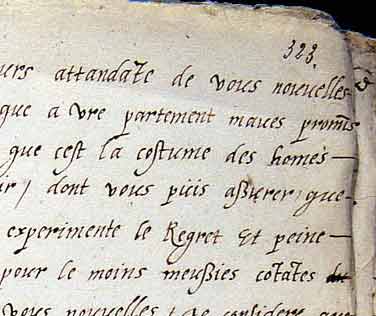 323.
attandate de vous nouvelles
que a vre partement maves promis
que cest la costume des homes
dont vous puis assurer que
experimente le Regret Et peine
pour le moins meussies cotates du
vous nouvelles Je considere que